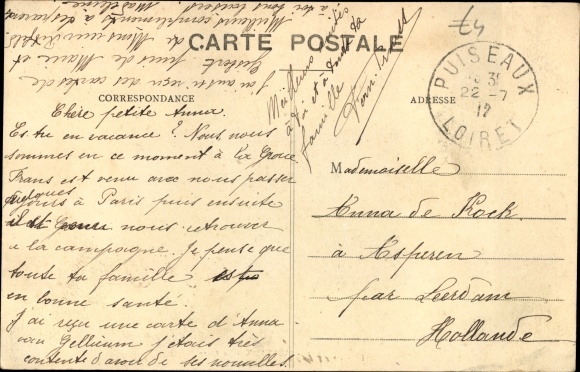 CARTE POSTALE
CORRESPONDANCE
ADRESSE
Chère petite Anna.
Es tu en vacance? Nous nous
sommes en ce moment à la Groue
Frans est venu avec nous passer
quelques jours à Paris puis ensuite
nous retrouver
a la campagne. Je pense que
toute ta famille est
en bonne santé.
J'ai reçu une carte d'Anna
van Gellicum j'etais très
contente d'avoir de ses nouvelles.
J'ai aussi reçu des cartes de
de Marie et
de Monsieur
Meilleurs compliments à
a tes
Madeleine
Meilleurs
à toi et à toute ta
famille
PUISEAUX
22-7
12
LOIRET
Mademoiselle
Anna de Kock.
à Asperen
par Leerdam
Hollande